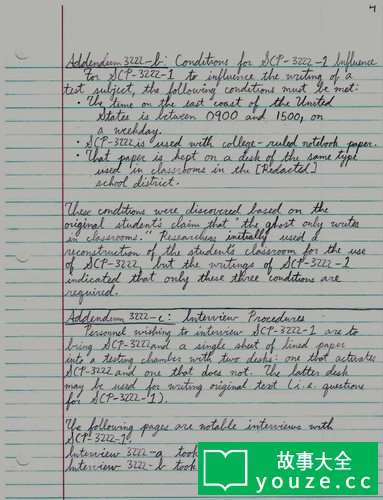 4
Addendum 3222-b: Conditions for SCP-3222-1 Influence
For SCP-3222-1 to influence the writing of a
test subject, the following conditions must be met:
• The time on the east coast of the United
States is between 0900 and 1500, on
a weekday.
• SCP-3222 is used with college-ruled notebook paper.
• That paper is kept on a desk of the same type
used in classrooms in the [Redacted]
school district.
These conditions were discovered based on the
original student's claim that "the ghost only writes
in classrooms." Researchers initially used a
reconstruction of the student's classroom for the use
of SCP-3222, but the writings of SCP-3222-1
indicated that only these three conditions are
required.
Addendum 3222-c: Interview Procedures
Personnel wishing to interview SCP-3222-1 are to
bring SCP-3222 and a single sheet of lined paper
into a testing chamber with two desks: one that activates
SCP-3222 and one that does not. The latter desk
may be used for writing original text (i.e. questions
for SCP-3222-1).
The following pages are notable interviews with
SCP-3222-1.
Interview 3222-a took
Interview 3222-b took
故事大全
youze.cc